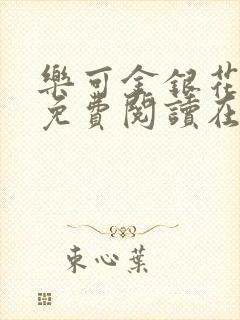 樂可金銀花
免費閱讀在
束心葉